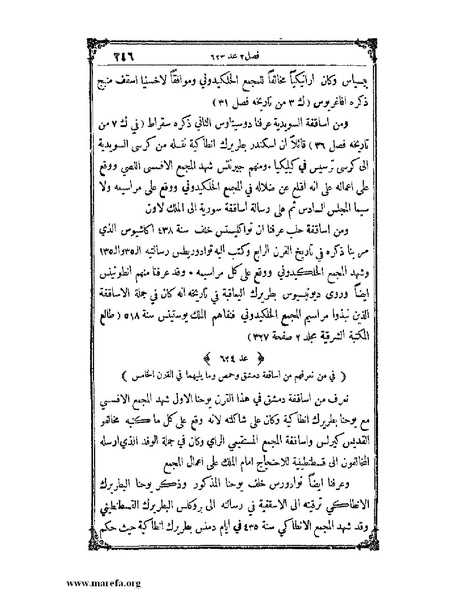 فصل ٢ عد ٦٢٣
٣٤٦
بيسياس وكان اراتيكياً مخالفاً للمجمع الخلكيدوني وموافقاً لاخسنيا اسقف منبج
ذكره افاغريوس (ك ٣ من تاريخه فصل ٣١)
ومن اساقفة السويدية عرفنا دوسيتاوس الثاني ذكره سقراط (في ك ٧ من
تاريخه فصل ٣٦) قائلاً ان اسكندر بطريرك انطاكية نقله من كرسي السويدية
الى كرسي ترسيس في كيليكيا ٠ ومنهم جيرنتس شهد المجمع الافسسي اللصي ووقع
على اعماله على انه اقلع عن ضلاله في المجمع الخلكيدوني ووقع على مراسيمه ولا
سيما المجلس السادس ثم على رسالة اساقفة سورية الى الملك لاون
ومن اساقفة حلب عرفنا ان تواكليستس خلف سنة ٤٣٨ اكاشيوس الذي
مر بنا ذكره في تاريخ القرن الرابع وكتب اليه توادوريطس رسالتيه الـ٣٥ والـ١٣٥
وشهد المجمع الخلكيدوني ووقع على كل مراسيمه ٠ وقد عرفنا منهم انطونينس
ايضاً وروى ديونيسيوس بطريرك اليعاقبة في تاريخه انه كان في جملة الاساقفة
الذين نبذوا مراسيم المجمع الخلكيدوني فنفاهم الملك يوستينس سنة ٥١٨ (طالع
المكتبة الشرقية مجلد ٢ صفحة ٣٢٧)
﴿ عد ٦٢٤ ﴾
( في من نعرفهم من اساقفة دمشق وحمص وما يليهما في القرن الخامس )
نعرف من اساقفة دمشق في هذا القرن يوحنا الاول شهد المجمع الافسسي
مع يوحنا بطريرك انطاكية وكان على شاكلته لانه وقع على كل ما كتبه مخالفو
القديس كيرلس واساقفة المجمع المستقيمي الراي وكان في جملة الوفد الذي ارسله
المخالفون الى قسطنطينية للاحتجاج امام الملك على اعمال المجمع
وعرفنا ايضاً توادورس خلف يوحنا المذكور وذكر يوحنا البطريرك
الانطاكي ترقيته الى الاسقفية في رسالته الى بروكلس البطريرك القسطنطيني
وقد شهد المجمع الانطاكي سنة ٤٣٥ في ايام دمنس بطريرك انطاكية حيث حكم
www.marefa.org